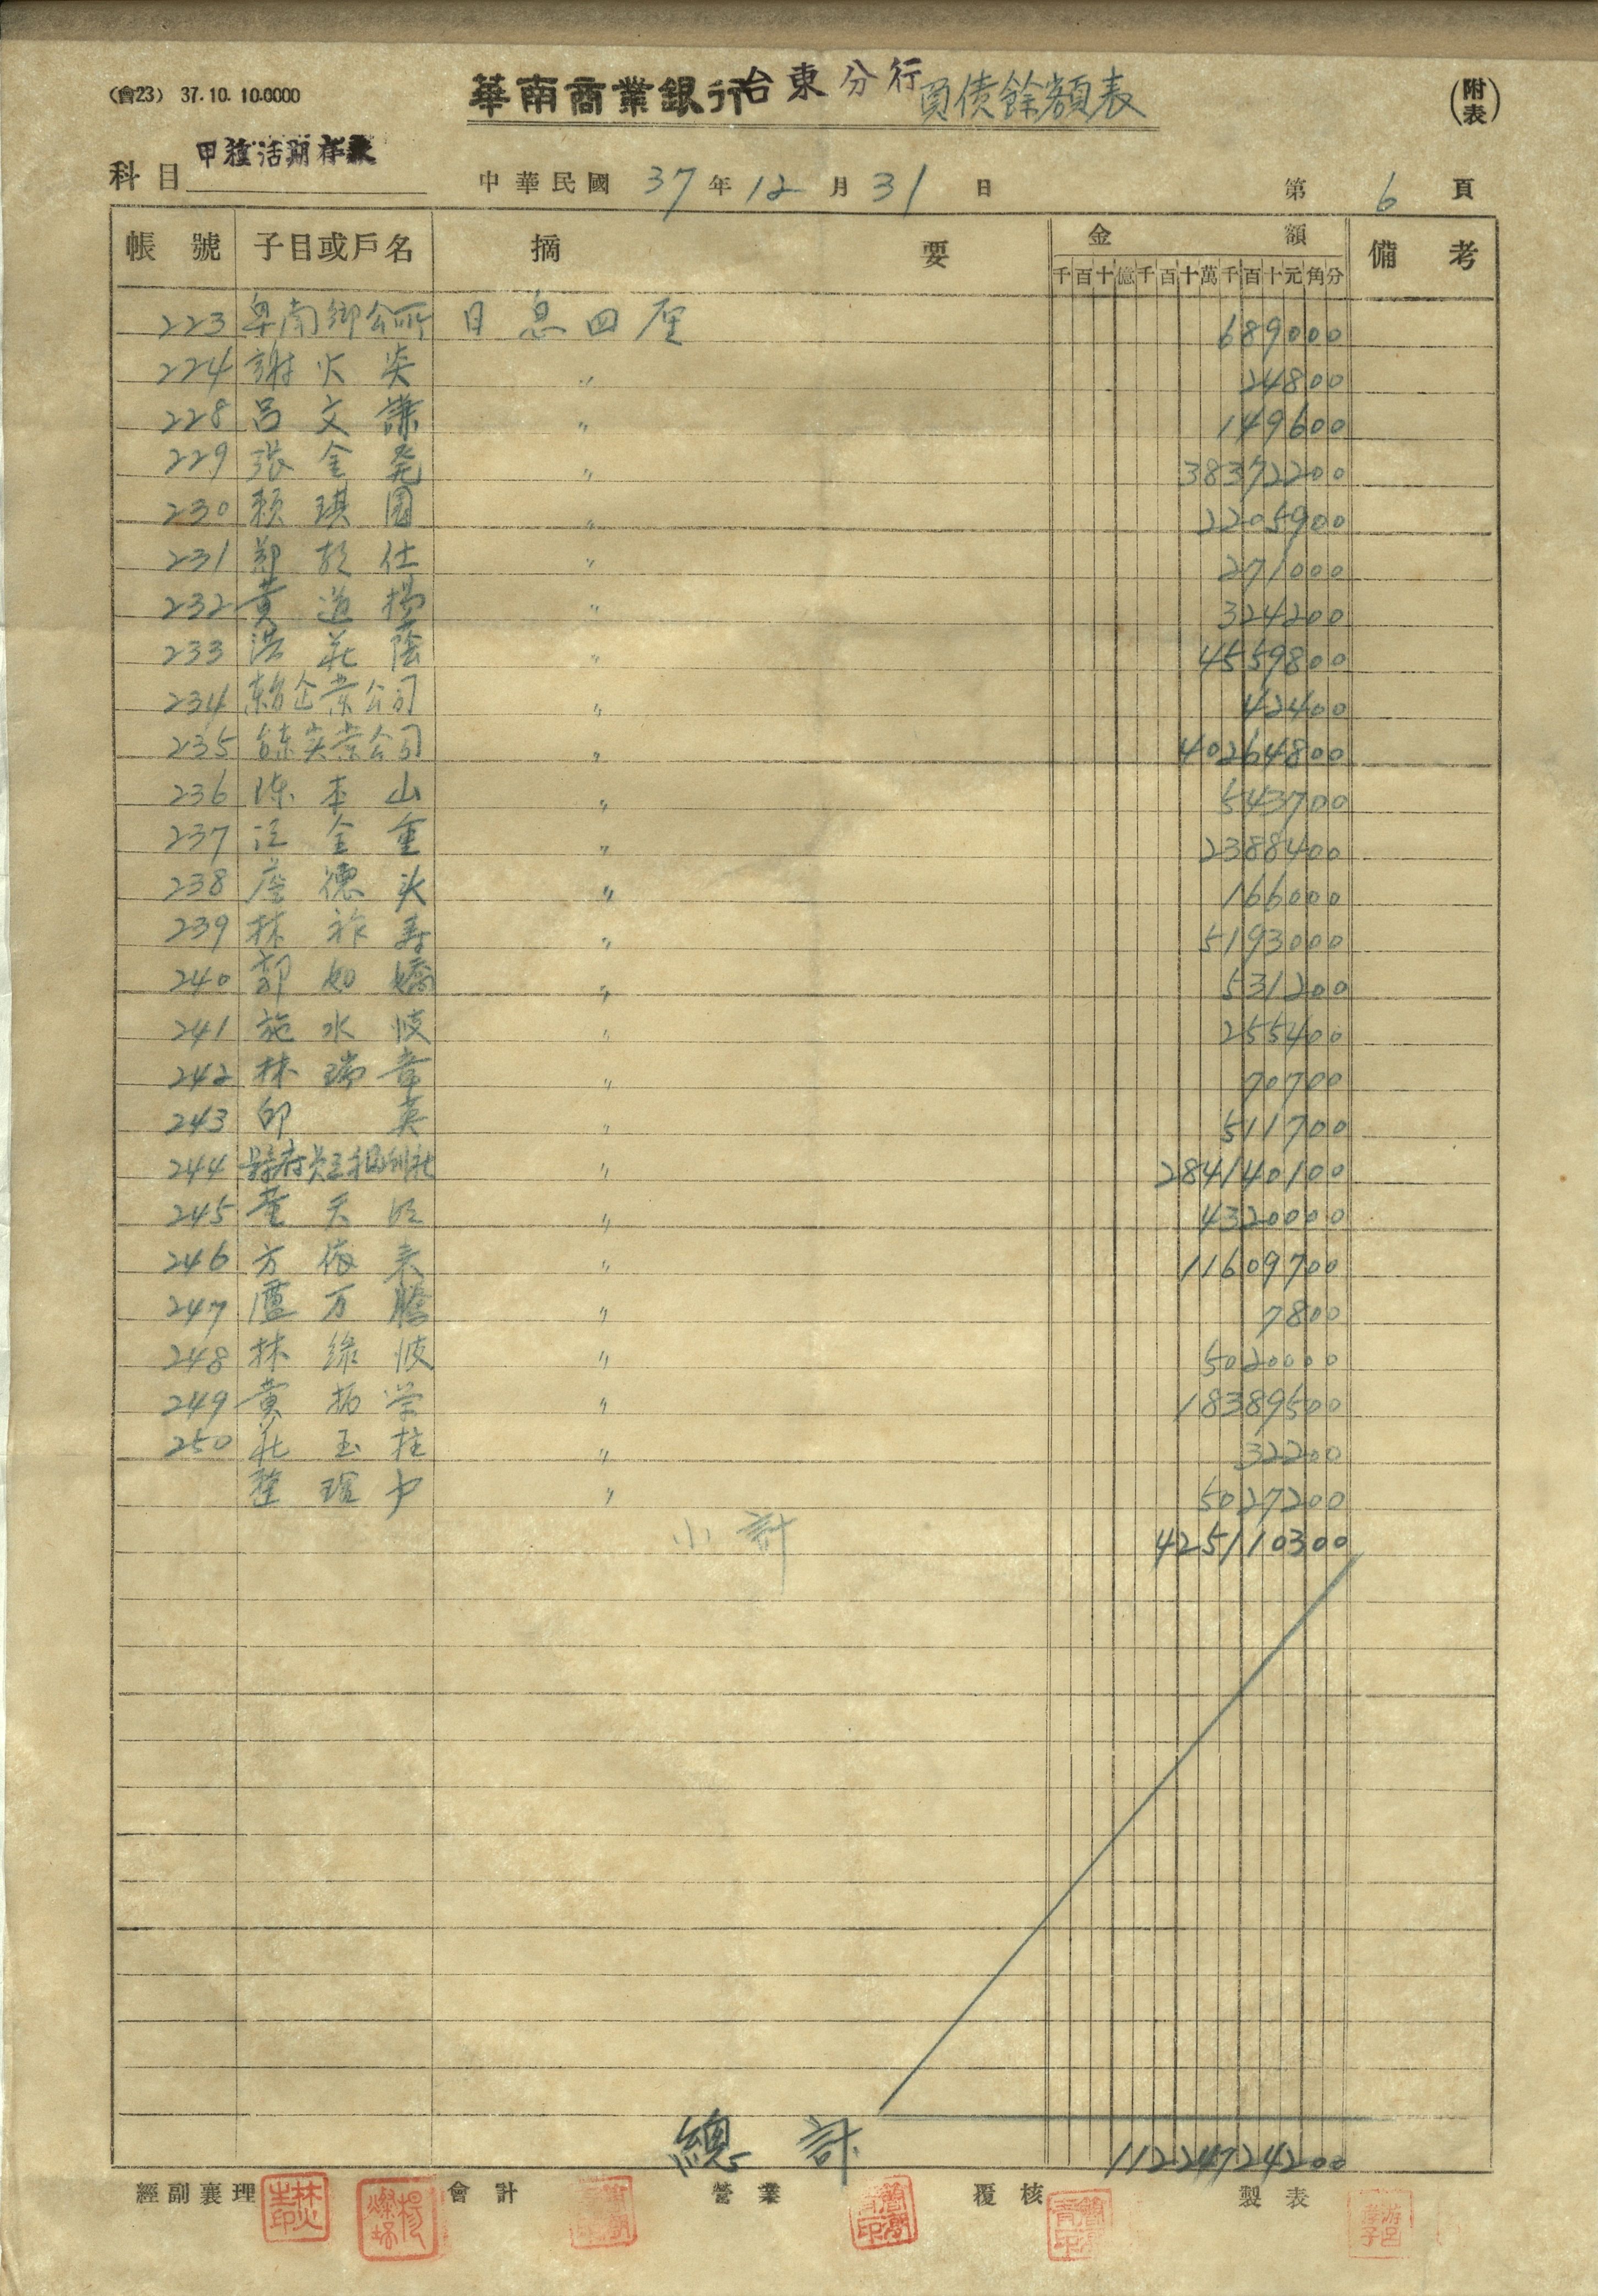 (會23) 37.10. 10.0000
華南商業銀行台東分行負債餘額表
(附表)
科目 甲種活期存款
中華民國 37 年 12 月 31 日
第 6 頁
帳號 子目或戶名 摘要 金額 備考
千百十億千百十萬千百十元角分
223 卑南鄉公所 日息四厘 689000
224 謝火炎 〃 24800
228 呂文謙 〃 149600
229 張金発 〃 38372200
230 賴琪園 〃 2205900
231 鄭 仕 〃 271000
232 黃道揚 〃 324200
233 洪莊陰 〃 4559800
234 東台企業公司 〃 42400
235 台東実業公司 〃 40264800
236 陳本山 〃 543700
237 江金重 〃 2388400
238 詹德火 〃 166000
239 林祚寿 〃 5193000
240 郭如嬌 〃 531200
241 施水波 〃 255400
242 林瑞章 〃 70700
243 邱英 〃 511700
244 縣府員工福利社 〃 284140100
245 董天 〃 4320000
246 方 来 〃 11609700
247 盧万騰 〃 7800
248 林綠波 〃 5020000
249 黃拓学 〃 18389500
250 莊玉柱 〃 32200
5027200
小計 425110300
總計 11224724200
經副襄理 會計 營業 覆核 製表